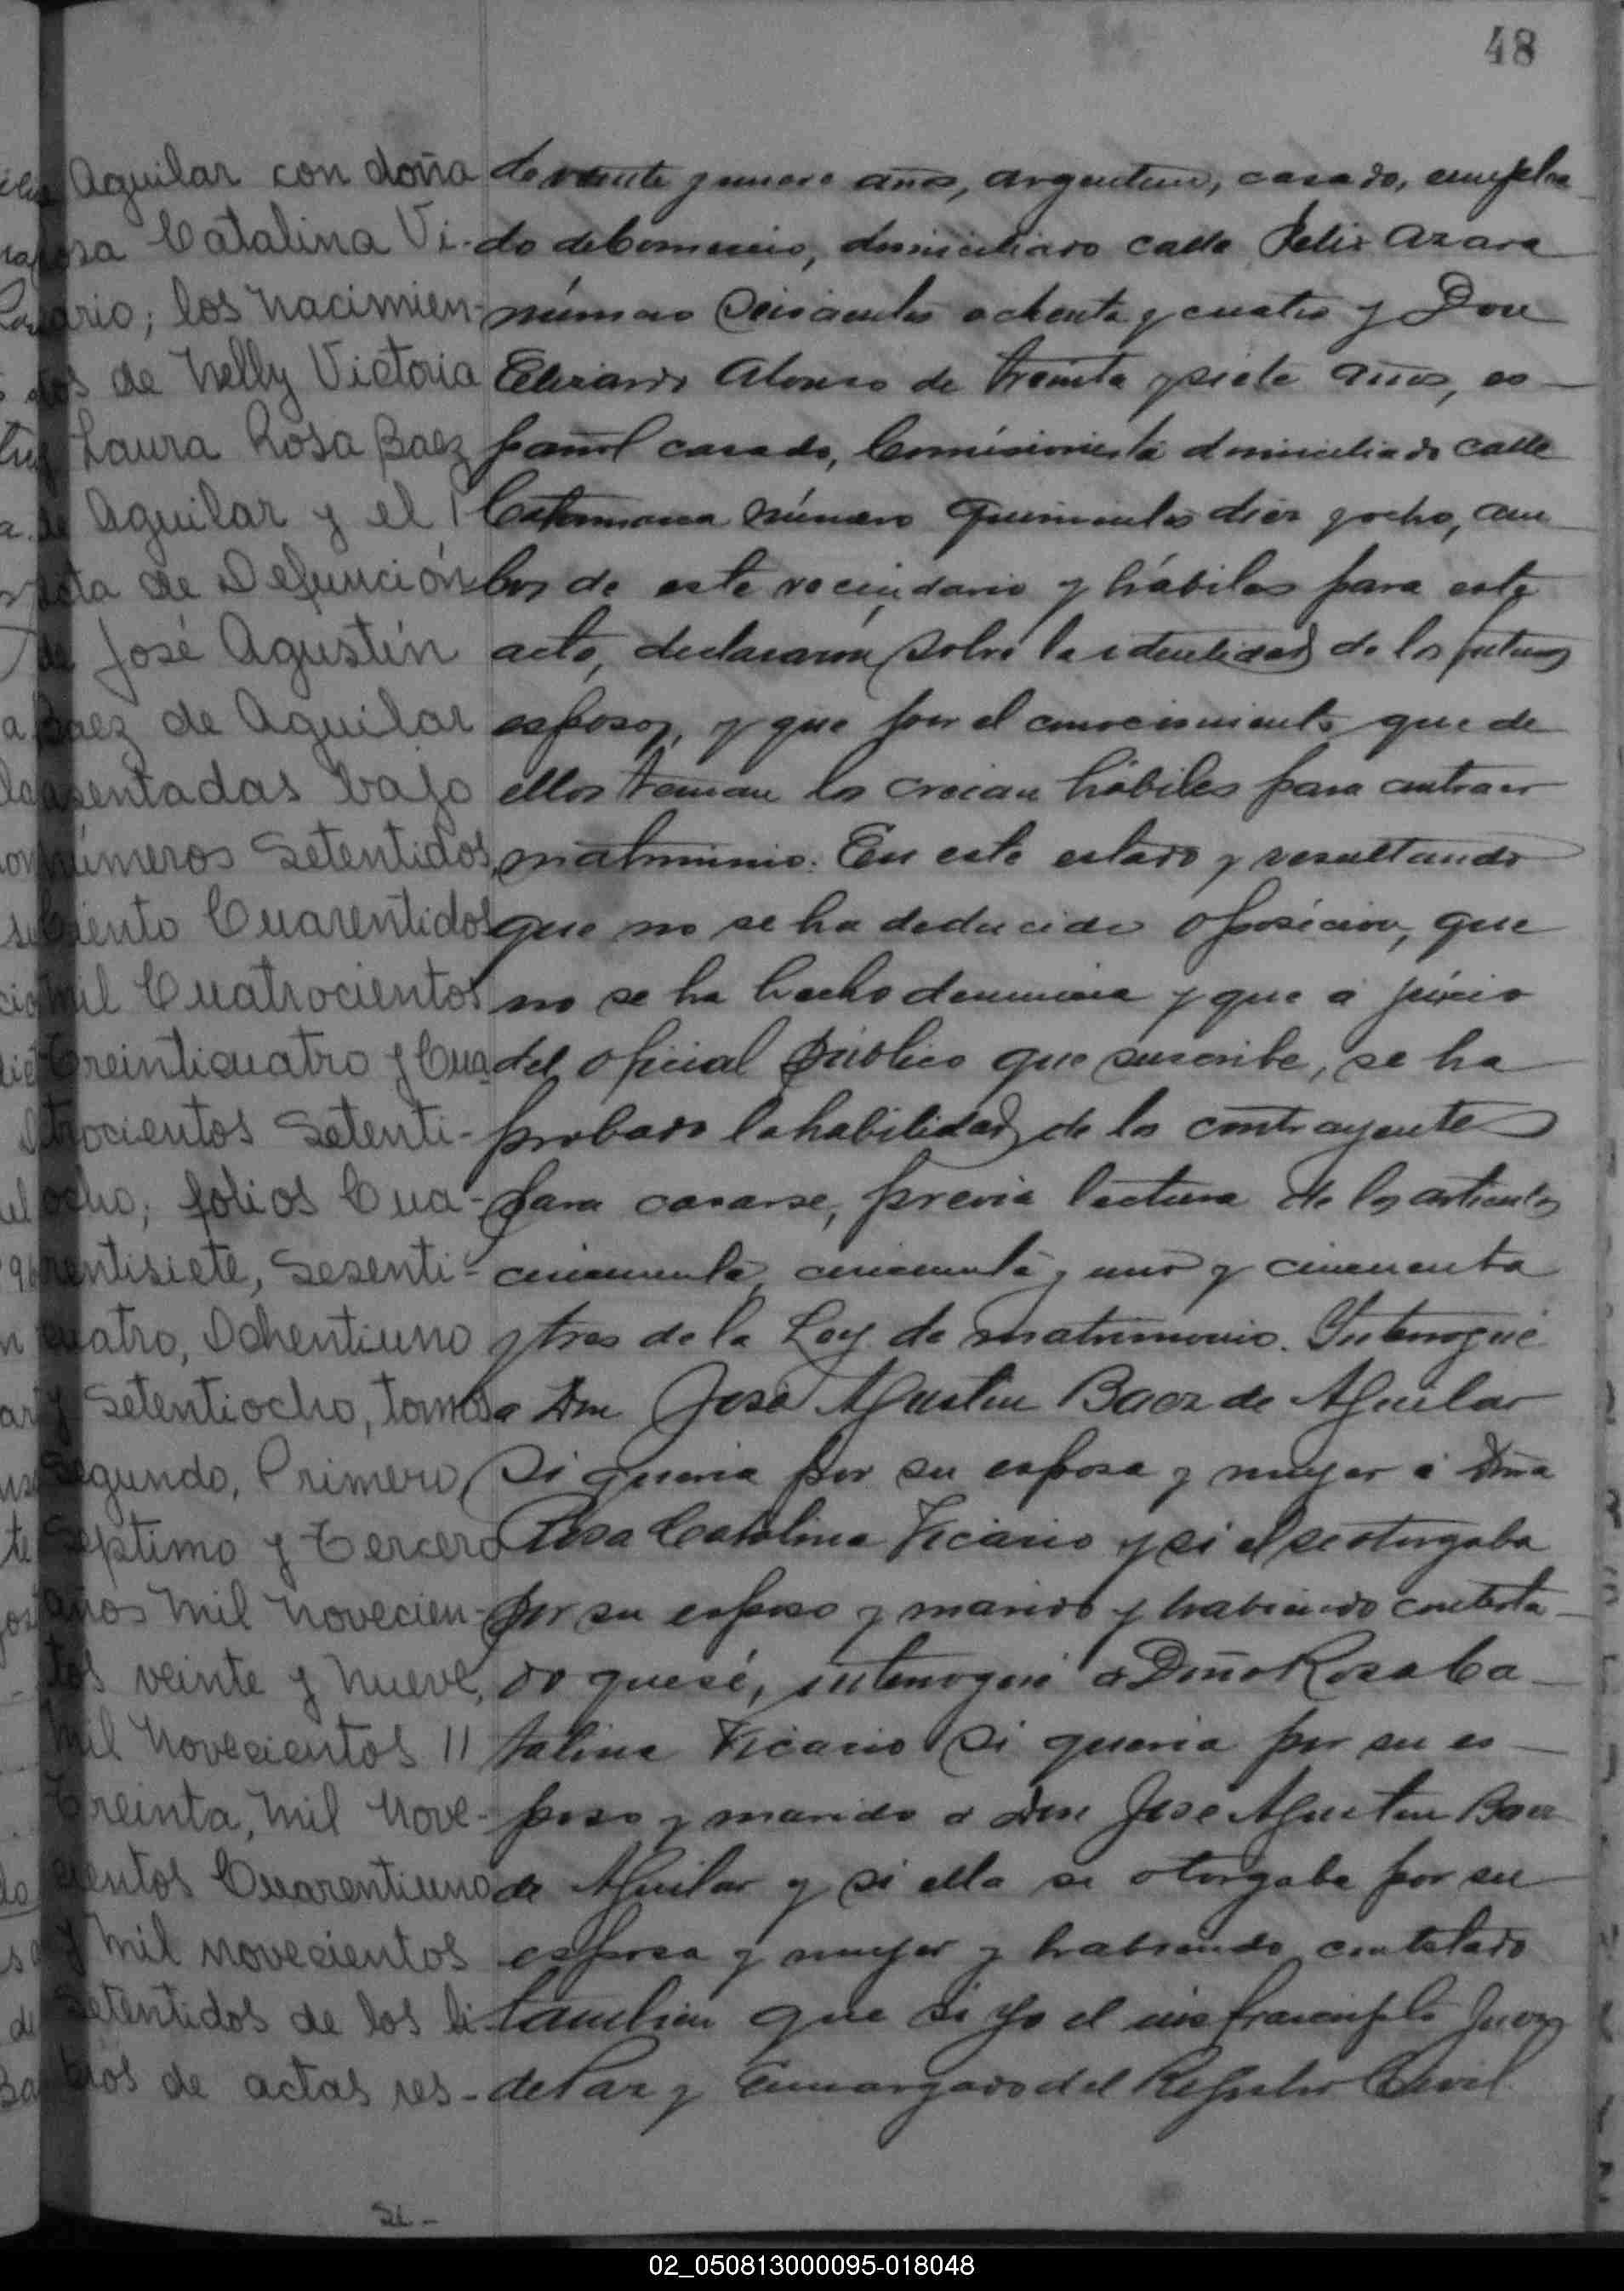 48
Aguilar con doña
Rosa Catalina Vi-
cario; los Nacimien-
tos de Nelly Victoria
Laura Rosa Baez
de Aguilar y el
acta de Defunción
de José Agustín
Baez de Aguilar
asentadas bajo
números Setentidos,
Ciento Cuarentidos
mil Cuatrocientos
treinticuatro y Cua
trocientos Setenti-
ocho; folios Cua-
rentisiete, Sesenti-
cuatro, Ochentiuno
y Setentiocho, tomos
Segundo, Primero,
Septimo y Tercero
años Mil Novecien-
tos veinte y nueve,
Mil Novecientos
Treinta, Mil Nove-
cientos Cuarentiuno
y Mil novecientos
Setentidos de los li-
bros de actas res-
de veinte y nueve años, argentino, casado, emplea
do de Comercio, domiciliado calle Felix Azara
número Seiscientos ochenta y cuatro y Don
Elizardo Alonso de treinta y siete años, es-
pañol casado, Comisionista domiciliado calle
Catamarca número quinientos diez y ocho, am
bos de este vecindario y hábiles para este
acto, declararon sobre la identidad de los futuros
esposos, y que por el conocimiento que de
ellos tenian los creian hábiles para contraer
matrimonio. En este estado y resultando
que no se ha deducido oposición, que
no se ha hecho denuncia y que á juicio
del oficial público que suscribe, se ha
probado la habilidad de los contrayentes
para casarse, previa lectura de los articulos
cincuenta, cincuenta y uno y cincuenta
y tres de la Ley de matrimonio. Interrogué
a Don José Agustin Baez de Aguilar
si queria por su esposa y mujer á Doña
Rosa Catalina Vicario y si el se otorgaba
por su esposo y marido y habiendo contesta-
do que sí, interrogué a Doña Rosa Ca-
talina Vicario si queria por su es-
poso y marido a Don José Agustin Baez
de Aguilar y si ella se otorgaba por su
esposa y mujer y habiendo contestado
tambien que si yo el infrascripto Juez
de Paz y Encargado del Registro Civil
02_050813000095-018048